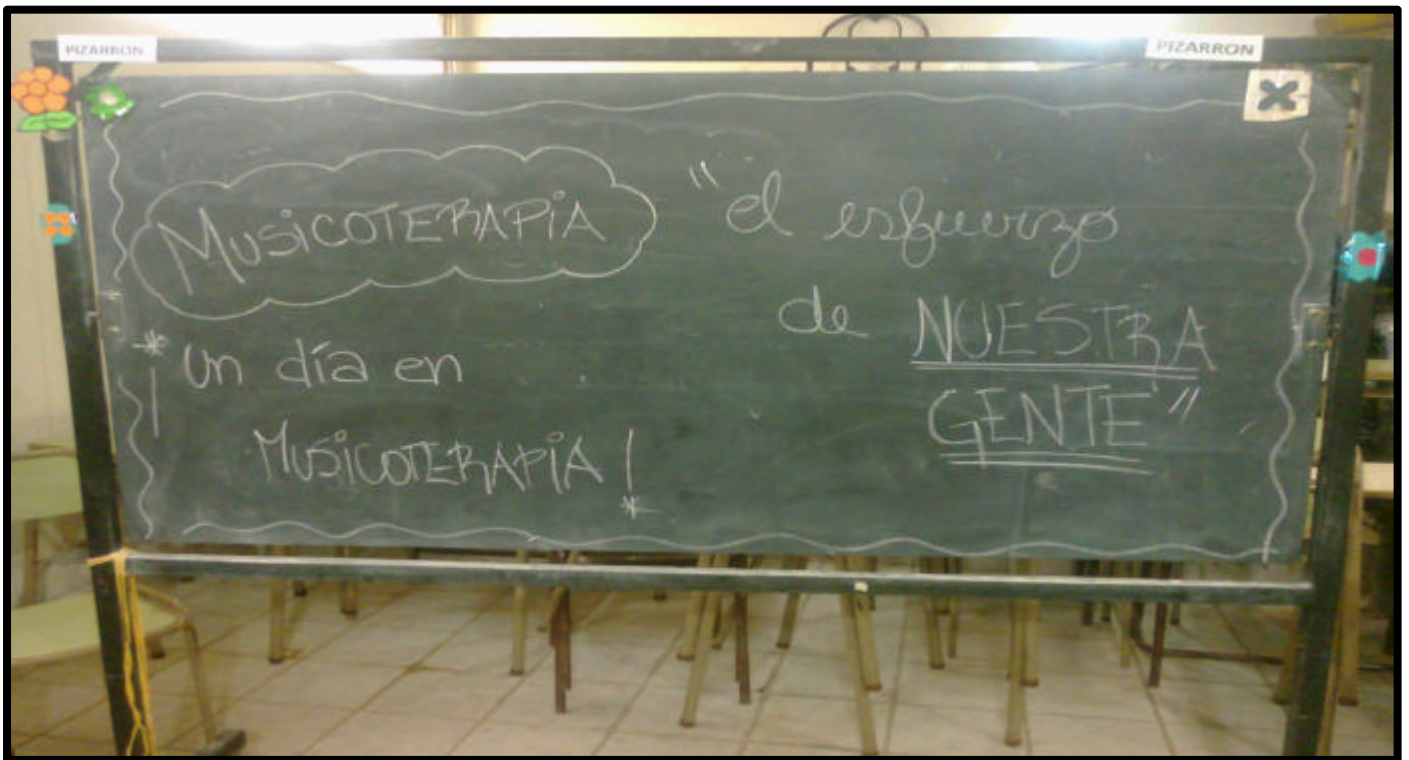 PIZARRON
PIZARRON
MUSICOTERAPIA
"el esfuerzo
de NUESTRA
GENTE"
* ¡Un día en
MUSICOTERAPIA!
*